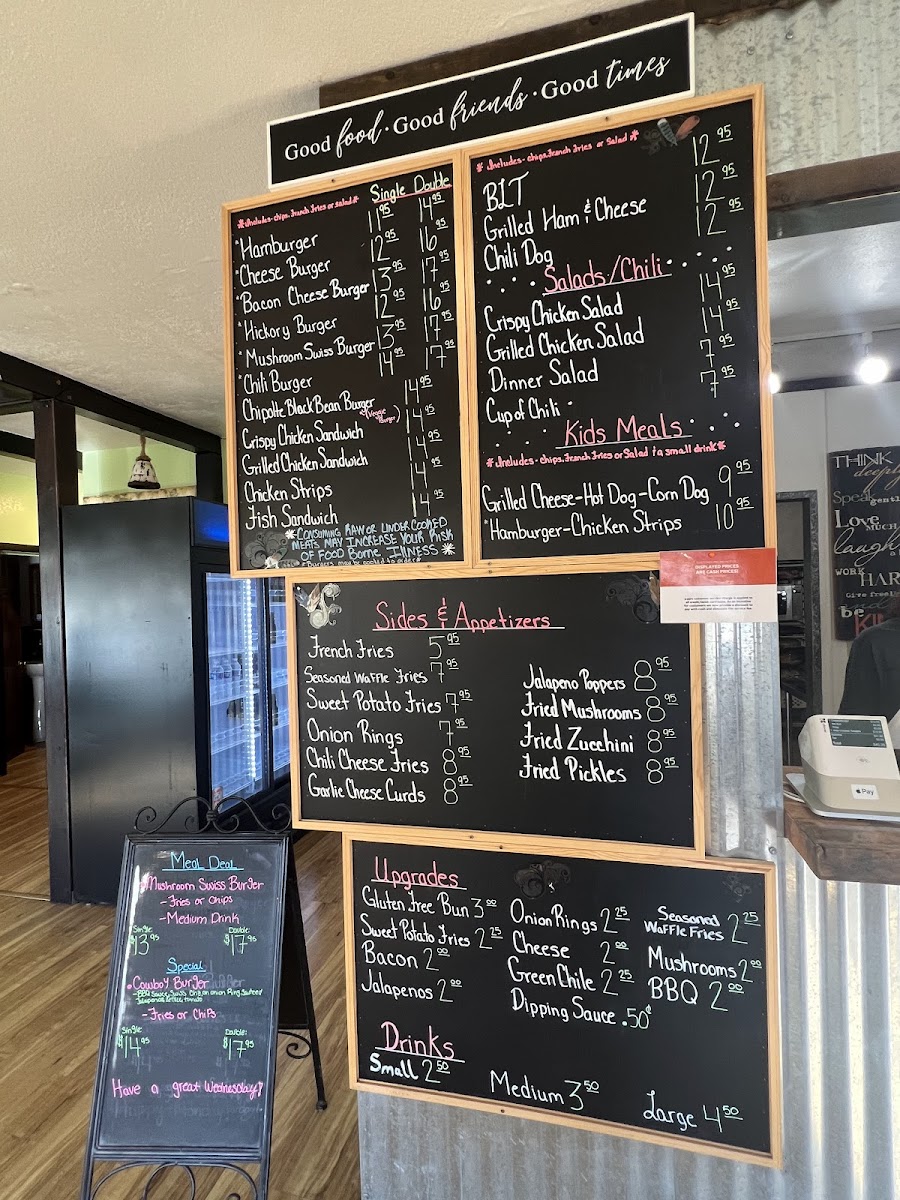 Good food · Good friends · Good times
*Includes - chips, French Fries or salad*
Single Double
*Hamburger 11.95 14.95
*Cheese Burger 12.95 16.95
*Bacon Cheese Burger 13.95 17.95
*Hickory Burger 12.95 16.95
*Mushroom Swiss Burger 13.95 17.95
*Chili Burger 14.95 17.95
Chipolte Black Bean Burger 14.95
(Veggie Burger)
Crispy Chicken Sandwich 14.95
Grilled Chicken Sandwich 14.95
Chicken Strips 14.95
Fish Sandwich 14.95
*Consuming raw or under cooked
meats may increase your risk
of food borne illness*
*Burgers may be cooked to order*
*Includes - chips, French Fries or Salad*
BLT 12.95
Grilled Ham & Cheese 12.95
Chili Dog 12.95
Salads/Chili
Crispy Chicken Salad 14.95
Grilled Chicken Salad 14.95
Dinner Salad 7.95
Cup of Chili 7.95
Kids Meals
*Includes - chips, French Fries or Salad & a small drink*
Grilled Cheese-Hot Dog-Corn Dog 9.95
*Hamburger-Chicken Strips 10.95
DISPLAYED PRICES
ARE CASH PRICES!
Sides & Appetizers
French Fries 5.95
Seasoned Waffle Fries 7.95
Sweet Potato Fries 7.95
Onion Rings 7.95
Chili Cheese Fries 8.95
Garlic Cheese Curds 8.95
Jalapeno Poppers 8.95
Fried Mushrooms 8.95
Fried Zucchini 8.95
Fried Pickles 8.95
Upgrades
Gluten Free Bun 3.00
Sweet Potato Fries 2.25
Bacon 2.00
Jalapenos 2.00
Onion Rings 2.25
Cheese 2.00
Green Chile 2.25
Dipping Sauce .50¢
Seasoned
Waffle Fries 2.25
Mushrooms 2.00
BBQ 2.00
Drinks
Small 2.50
Medium 3.50
Large 4.50
Meal Deal
Mushroom Swiss Burger
-Fries or Chips
-Medium Drink
Single: $13.95
Double: $17.95
Special
Cowboy Burger
-Fries or Chips
Single: $14.95
Double: $17.95
Have a great Wednesday!
THINK
deeply
Speak gently
Love
laugh
WORK
HARD
Give freely
be
Pay